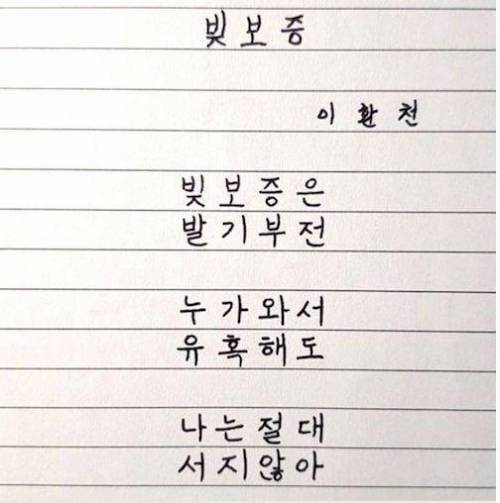 빚보증
이환천
빚보증은
발기부전
누가와서
유혹해도
나는절대
서지않아